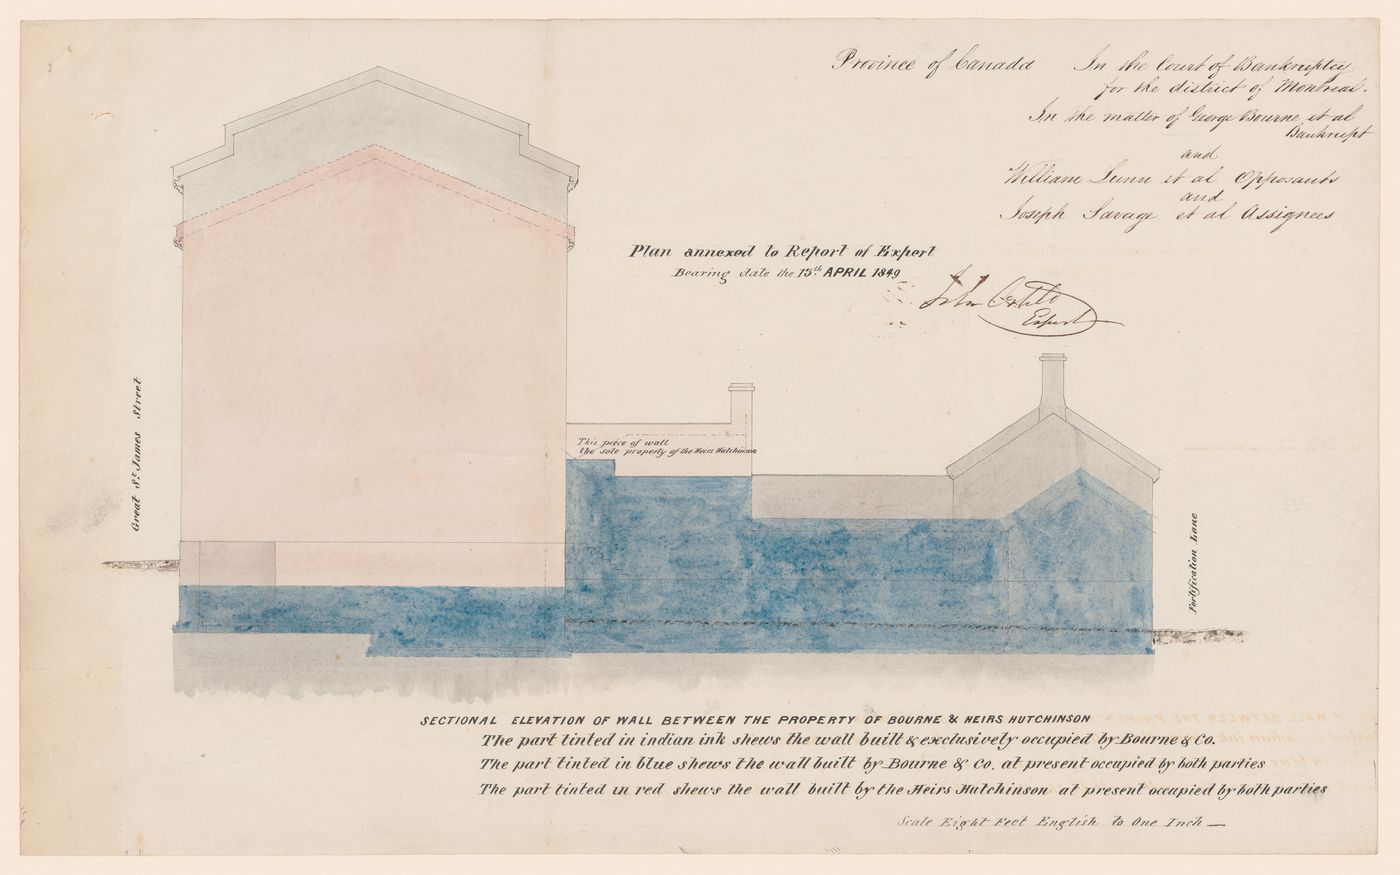 Province of Canada
In the Court of Bankruptcy
for the district of Montreal.
In the matter of George Bourne et al
Bankrupt
and
William Lunn et al Opposants
and
Joseph Savage et al Assignees
Plan annexed to Report of Expert
Bearing date the 15th APRIL 1849
John
Expert
Great St. James Street
This piece of wall
the sole property of the Heirs Hutchinson
Fortification Lane
SECTIONAL ELEVATION OF WALL BETWEEN THE PROPERTY OF BOURNE & HEIRS HUTCHINSON
The part tinted in indian ink shews the wall built & exclusively occupied by Bourne & Co.
The part tinted in blue shews the wall built by Bourne & Co. at present occupied by both parties
The part tinted in red shews the wall built by the Heirs Hutchinson at present occupied by both parties
Scale Eight Feet English to One Inch